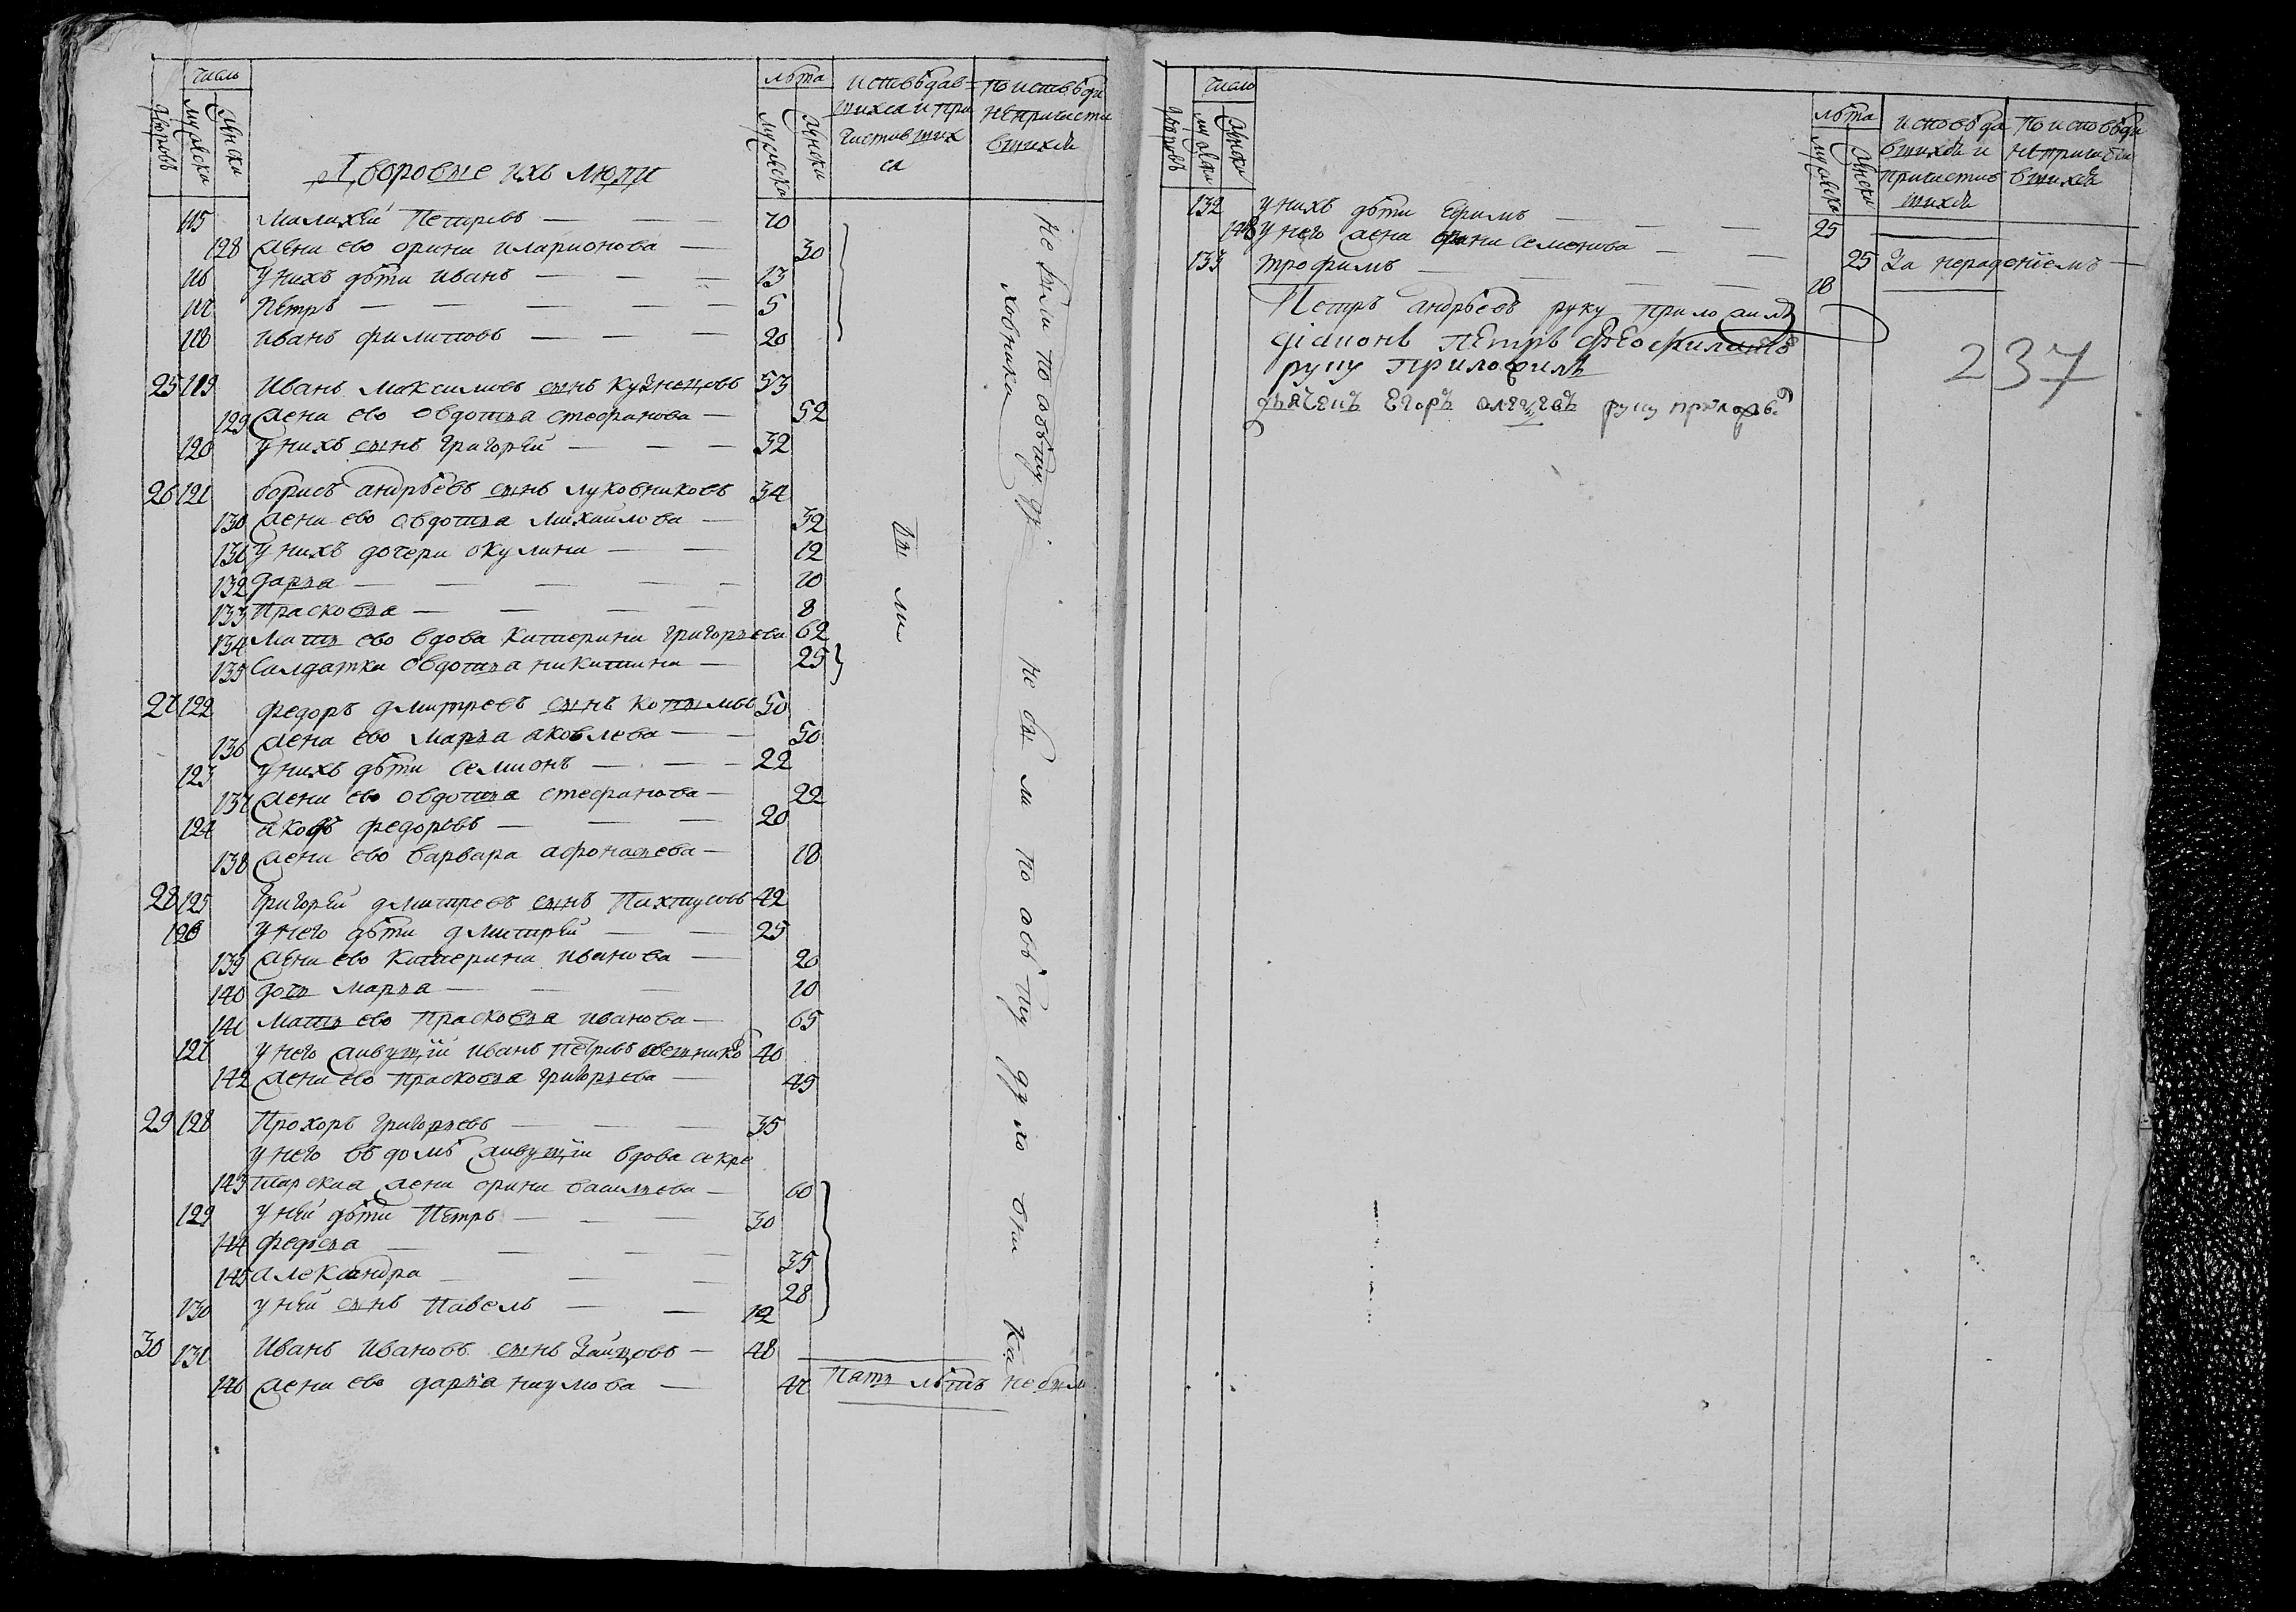 число
лѣта
исповѣдав=
шихса и при
частивших
са
по исповѣди
непричасти
вшихся
дворовъ
мужска
женска
мужска
женска
Дворовые ихъ люди
115 Малихѣй Петровъ — — 70
128 жена ево орина иларионова — 30
116 у нихъ дѣти иванъ — — — 13
117 Петръ — — — — 5
118 иванъ филиповъ — — — 20
25 119 Иванъ максимовъ сынъ кузнецовъ 53
129 жена ево овдотья стефанова — 52
120 у нихъ сынъ григорей — — — 32
26 121 борисъ андрѣевъ сынъ луковниковъ 34
130 жена ево овдотья михайлова — 32
131 у нихъ дочери окулина — — 12
132 дарья — — — — — 10
133 Прасковья — — — — 8
134 мать ево вдова катерина григорьева 62
135 Салдатка овдотья никитина — 25
27 122 федоръ дмитреевъ сынъ копыловъ 50
136 жена ево марья яковлева — — 50
123 у нихъ дѣти семионъ — — — 22
137 жена ево овдотья стефанова — 22
124 яковъ федоровъ — — — 20
138 жена ево варвара афонасьева — 18
28 125 Григорей дмитреевъ сынъ Пахтусовъ 42
126 у него дѣти дмитрей — — 25
139 жена ево катерина иванова — 20
140 дочь марья — — — 10
141 мать ево прасковья иванова — 65
127 у него живущiй иванъ петровъ 40
142 жена ево прасковья григорьева — 45
29 128 Прохоръ григорьевъ — — — 35
у него въ домѣ живущiи вдова секре
143 тарская жена орина васильева — 60
129 у ней дѣти Петръ — — — 30
144 федосья — — — — 35
145 александра — — — 28
130 у ней сынъ павелъ — — 12
30 131 Иванъ Ивановъ сынъ Зайцовъ — 48
146 жена ево дарья наумова — 47
пять лѣтъ не был
бы ли
не были по отъѣзду ду
ховника
не бы ли по отъ ѣзду ду хо вни ка
число
дворовъ
мужска
женска
лѣта
мужска
женска
исповѣда
вшихся и
причастив
шихся
по исповѣди
непричасти
вшихся
132 у нихъ дѣти Ефимъ — — — 25
148 у него жена Семенова — — 25 За нерадениемъ —
133 трофимъ — — — — 18
Петръ андрѣевъ руку приложилъ
дiаконъ Петръ Феофилатовъ
руку приложилъ
дьячекъ Егоръ алеѯеевъ руку приложилъ
237